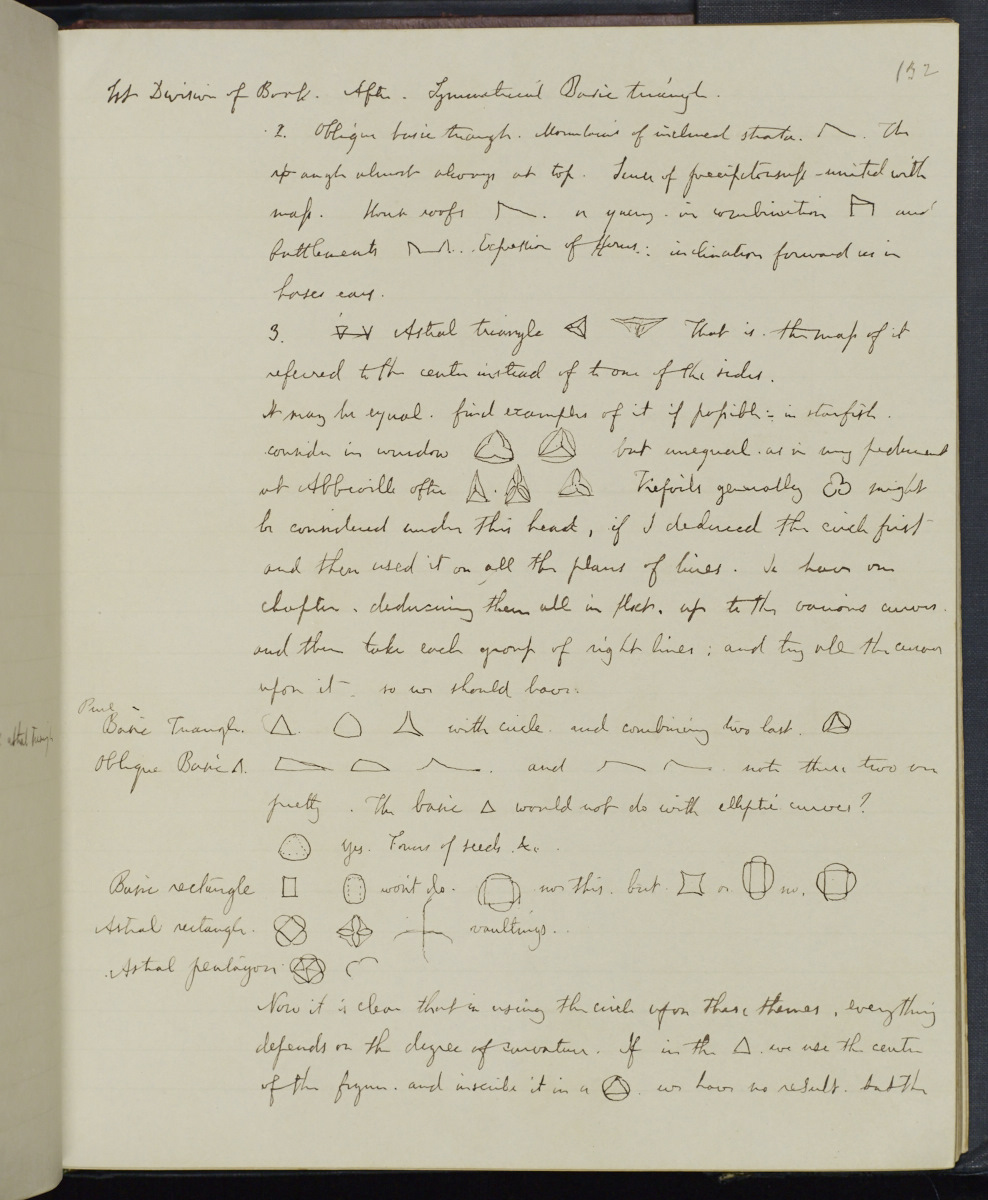 152
1st Division of Book. After. Symmetrical Basic triangle.
2. Oblique basic triangle. Mountains of inclined strata. The
angle almost always at top. Sense of precipitousness - united with
mass. House roofs or in combination and
battlements Expression of Horns: inclination forward as in
horses ears.
3. Astral triangle That is. the mass of it
referred to the center instead of to one of the sides.
It may be equal. find examples of it if possible: in starfish.
consider in window but unequal. as in my pediment
at Abbeville often Trefoils generally might
be considered under this head, if I deduced the circle first
and then used it on all the plans of lines. So have one
chapter. deducing them all in first. up to the various curves.
and then take each group of right lines; and try all the curves
upon it. so we should have:
Pure
Basic Triangle. with circle. and combining two last.
astral triangle
Oblique Basic Δ. and note these two are
pretty. The basic Δ would not do with elliptic curves?
yes. Forms of seeds &c.
Basic rectangle wont do. nor this. but or no.
Astral rectangle. vaultings..
Astral pentagon
Now it is clear that in using the circle upon these themes, everything
depends on the degree of curvature. If in the Δ. we use the center
of the figure. and inscribe it in a we have no result. but the